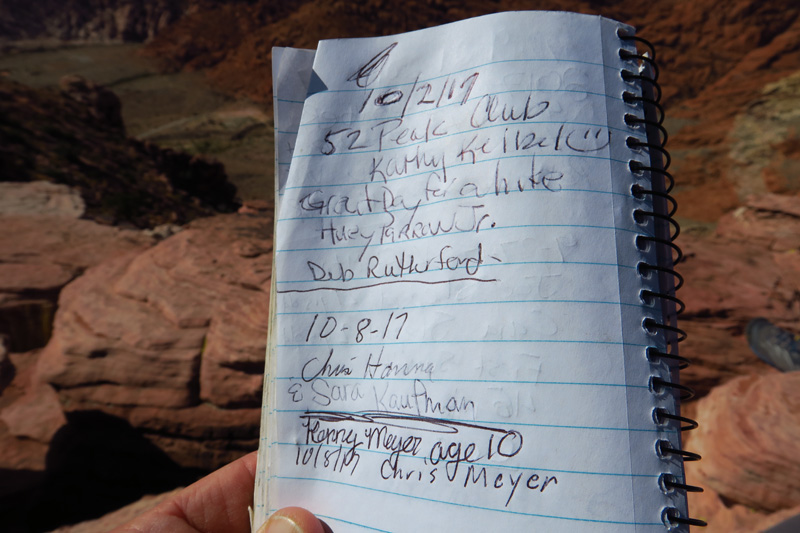 10/2/17
52 Peak Club
Kathy
Great Day for a hike
Huey Jr.
Deb Rutherford
10-8-17
Chris Hanna
& Sara Kaufman
Kenny Meyer, age 10
10/8/17 Chris Meyer